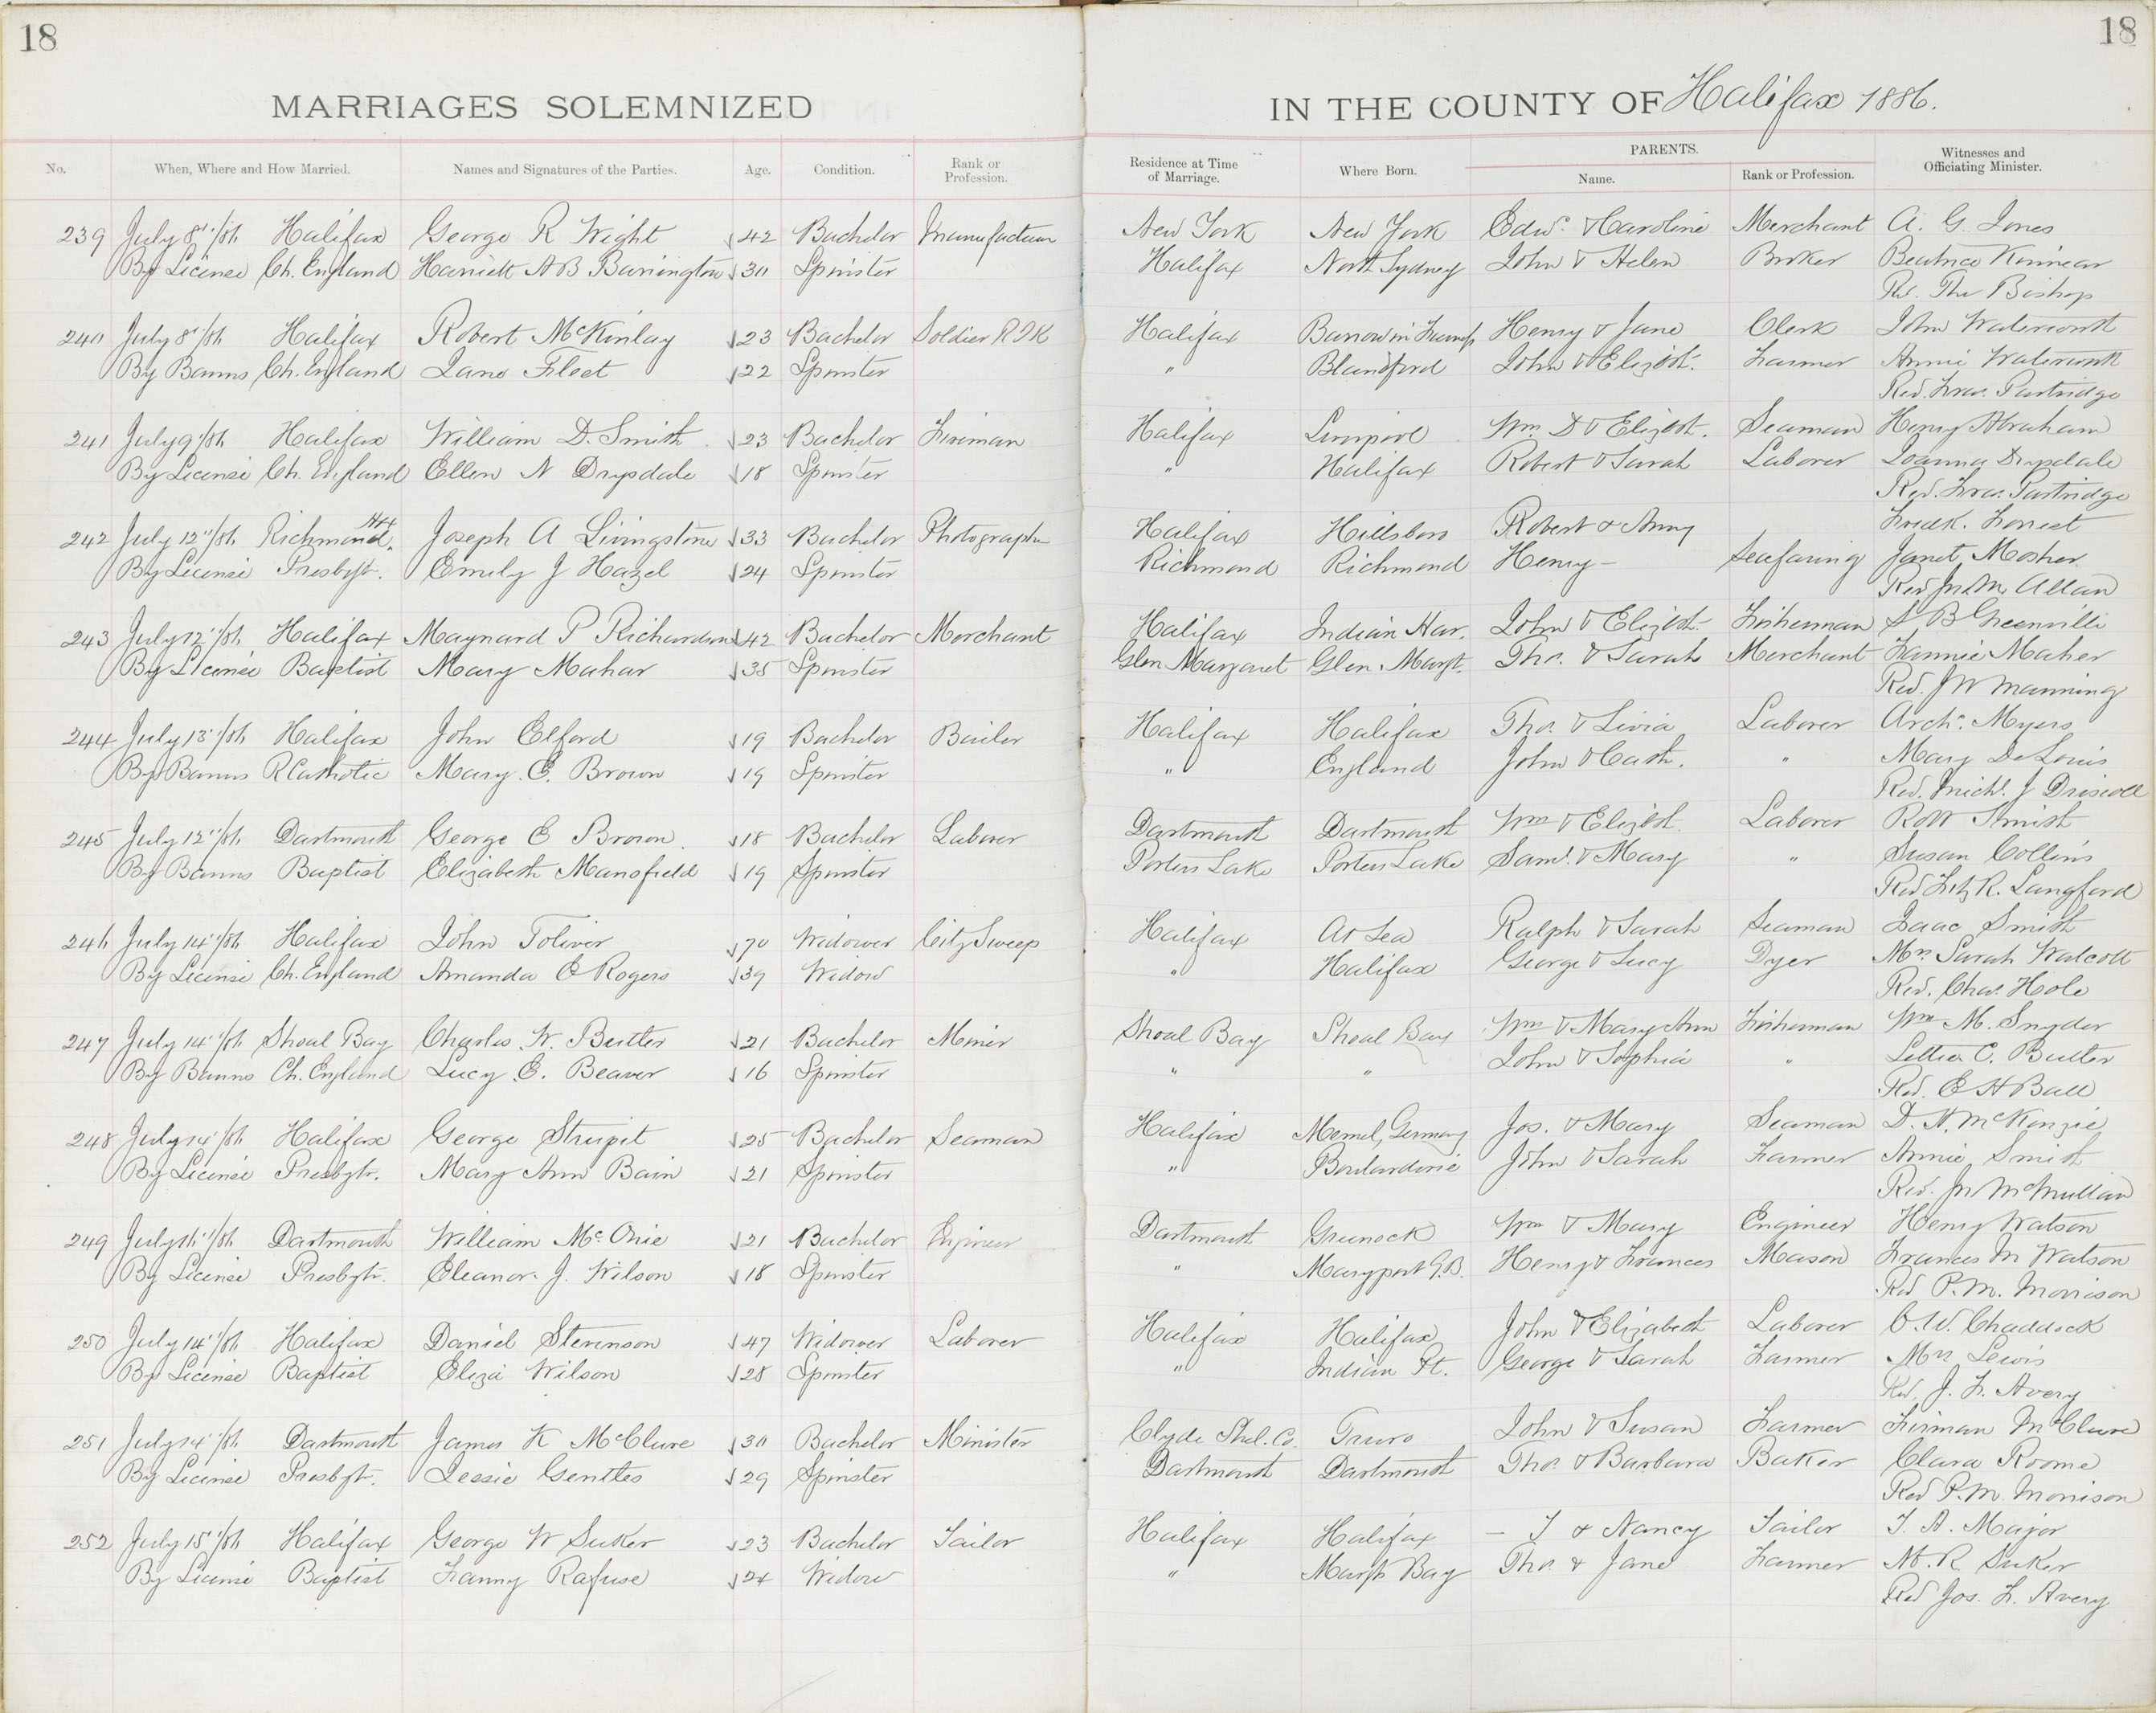 18
18
MARRIAGES SOLEMNIZED
IN THE COUNTY OF Halifax 1886.
No. When, Where and How Married. Names and Signatures of the Parties. Age. Condition. Rank or Profession. Residence at Time of Marriage. Where Born. PARENTS. Name. Rank or Profession. Witnesses and Officiating Minister.
239 July 8"/86 Halifax George R Wight 42 Bachelor Manufacturer New York New York Edwd. & Caroline Merchant A. G. Jones
By License Ch. England Harriett A B Barrington 30 Spinster Halifax North Sydney John & Helen Broker Beatrice Kinnear
Rd. The Bishop
240 July 8"/86 Halifax Robert McKinlay 23 Bachelor Soldier Halifax Barrow in Henry & Jane Clerk John Waterworth
By Banns Ch. England Jane Fleet 22 Spinster " Blandford John & Elizbt. Farmer Annie Waterworth
Rev. Fras. Partridge
241 July 9"/86 Halifax William D. Smith 23 Bachelor Fireman Halifax Liverpool Wm. D & Elizbt. Seaman Henry Abraham
By License Ch. England Ellen N Drysdale 18 Spinster " Halifax Robert & Sarah Laborer Joanna Drysdale
Rev. Fras. Partridge
242 July 12"/86 Richmond Hfx. Joseph A Livingstone 33 Bachelor Photographer Halifax Hillsboro Robert & Amy Fredk. Forrest
By License Presbyt. Emily J Hazel 24 Spinster Richmond Richmond Henry - Seafaring Janet Mosher
Rev Jn. M. Allan
243 July 12"/86 Halifax Maynard P Richardson 42 Bachelor Merchant Halifax Indian Har. John & Elizbt. Fisherman S B Greenville
By License Baptist Mary Mahar 35 Spinster Glen Margaret Glen Margt. Thos. & Sarah Merchant Fannie Maher
Rev. J W Manning
244 July 13"/86 Halifax John Elford 19 Bachelor Halifax Halifax Thos. & Livia Laborer Archd. Myers
By Banns R Catholic Mary. E. Brown 19 Spinster " England John & Cath. " Mary DeLouis
Rev. Michl. J Driscoll
245 July 12"/86 Dartmouth George E Brown. 18 Bachelor Laborer Dartmouth Dartmouth Wm & Elizbt. Laborer Smith
By Banns Baptist Elizabeth Mansfield 19 Spinster Porters Lake Porters Lake Saml. & Mary " Susan Collins
Rev R. Langford
246 July 14"/86 Halifax John Toliver 70 Widower City Sweep Halifax At Sea Ralph & Sarah Seaman Isaac Smith
By License Ch. England Amanda E Rogers 39 Widow " Halifax George & Lucy Dyer Mrs. Sarah Walcott
Rev. Chas. Hole
247 July 14"/86 Shoal Bay Charles W. Butler 21 Bachelor Miner Shoal Bay Shoal Bay Wm & Mary Ann Fisherman Wm M. Snyder
By Banns Ch. England Lucy E. Beaver 16 Spinster " " John & Sophia " Lettie C. Butler
Rd. E H Ball
248 July 14"/86 Halifax George Strupit 25 Bachelor Seaman Halifax Memel, Germany Jos. & Mary Seaman D. H. McKenzie
By License Presbyt. Mary Ann Bain 21 Spinster " Boulardarie John & Sarah Farmer Annie Smith
Rev. Jn McMillan
249 July 16"/86 Dartmouth William McOnie 21 Bachelor Engineer Dartmouth Greenock Wm & Mary Engineer Henry Watson
By License Presbyt. Eleanor. J. Wilson 18 Spinster " Maryport G.B. Henry & Frances Mason Frances M Watson
Rd P. M. Morrison
250 July 14"/86 Halifax Daniel Stevenson 47 Widower Laborer Halifax Halifax John & Elizabeth Laborer C. W. Chaddock
By License Baptist Eliza Wilson 28 Spinster " Indian Pt. George & Sarah Farmer Mrs. Lewis
Rd. J. F. Avery
251 July 14"/86 Dartmouth James K McClure 30 Bachelor Minister Clyde Shel. Co. Truro John & Susan Farmer Firman McClure
By License Presbyt. Jessie Gentles 29 Spinster Dartmouth Dartmouth Thos. & Barbara Baker Clara Roome
Rev P. M. Morrison
252 July 15"/86 Halifax George W Suker 23 Bachelor Tailor Halifax Halifax - J & Nancy Tailor J. A. Major
By License Baptist Fanny Rafuse 24 Widow " Margt. Bay Thos. & Jane Farmer M. R Suker
Rev Jos. F. Avery